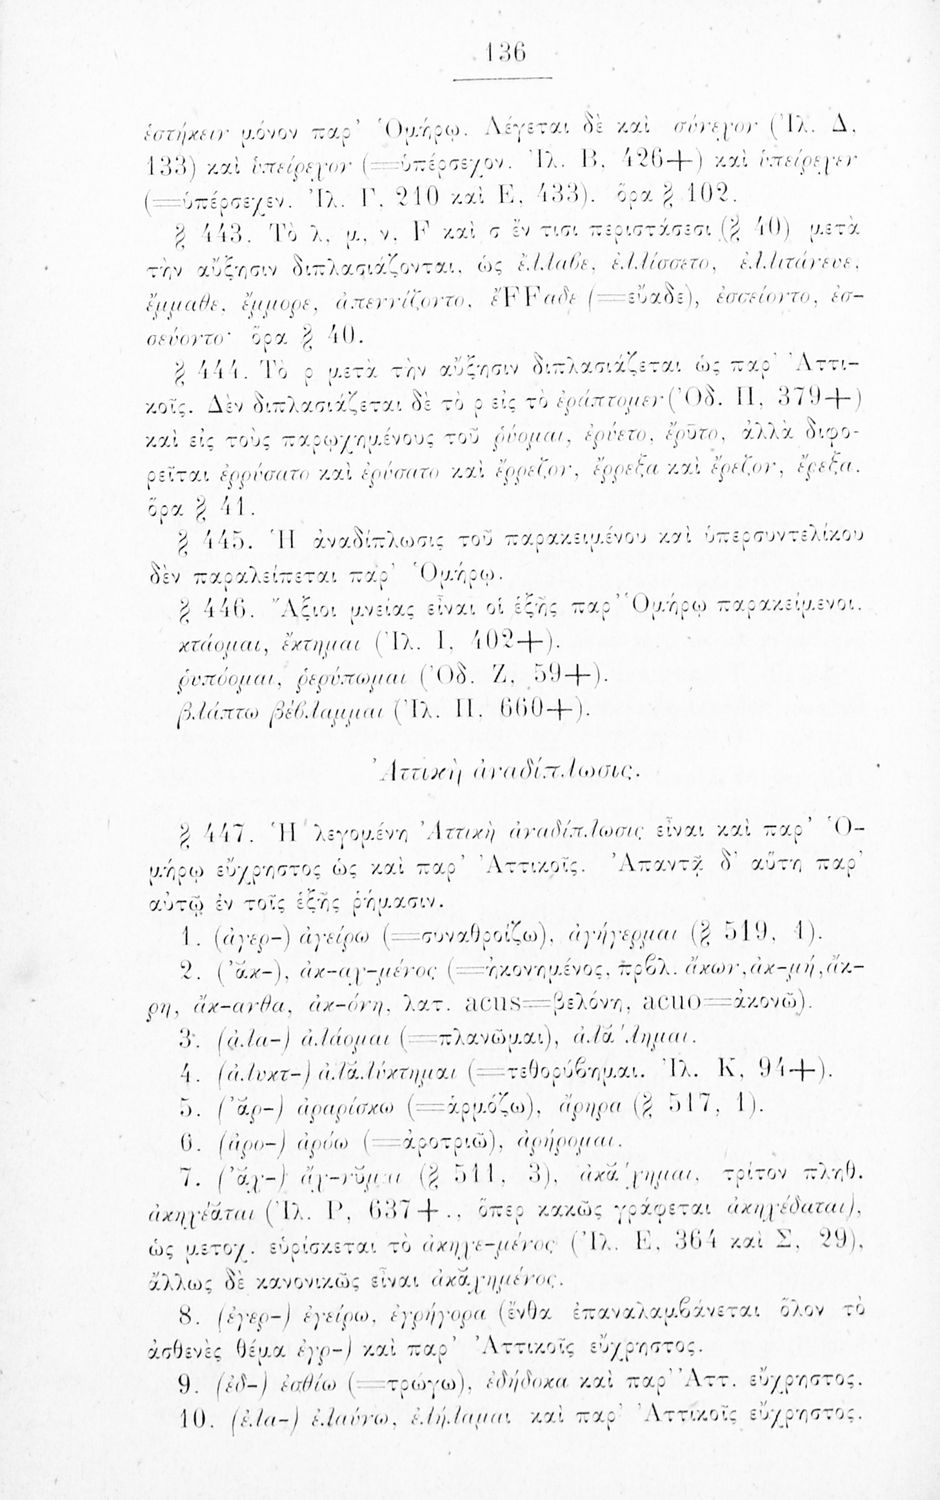 136
ἑστήκειν μόνον παρ' Ὁμήρῳ. Λέγεται δὲ καὶ σύνεχον (Ἰλ. Δ,
133) καὶ ὑπείρεχον (=ὑπέρσεχον. Ἰλ. Β, 426+) καὶ ὑπείρεχεν
(=ὑπέρσεχεν. Ἰλ. Γ, 210 καὶ Ε, 433). ὅρα § 102.
§ 443. Τὸ λ, μ, ν, F καὶ σ ἔν τισι περιστάσεσι (§ 40) μετὰ
τὴν αὔξησιν διπλασιάζονται, ὡς ἔλλαβε, ἐλλίσσετο, ἐλλιτάνευε,
ἔμμαθε, ἔμμορε, ἀπεννίζοντο, ἔFFαδε (=εὔαδε), ἐσσείοντο, ἐσ-
σεύοντο· ὅρα § 40.
§ 444. Τὸ ρ μετὰ τὴν αὔξησιν διπλασιάζεται ὡς παρ' Ἀττι-
κοῖς. Δὲν διπλασιάζεται δὲ τὸ ρ εἰς τὸ ἐράπτομεν (Ὀδ. Π, 379+)
καὶ εἰς τοὺς παρῳχημένους τοῦ ῥύομαι, ἐρύετο, ἔρῡτο, ἀλλὰ διφο-
ρεῖται ἐρρύσατο καὶ ἐρύσατο καὶ ἔρρεζον, ἔρρεξα καὶ ἔρεζον, ἔρεξα.
ὅρα § 41.
§ 445. Ἡ ἀναδίπλωσις τοῦ παρακειμένου καὶ ὑπερσυντελίκου
δὲν παραλείπεται παρ' Ὁμήρῳ.
§ 446. Ἄξιοι μνείας εἶναι οἱ ἑξῆς παρ' Ὁμήρῳ παρακείμενοι.
κτάομαι, ἔκτημαι (Ἰλ. Ι, 402+).
ῥυπόομαι, ῥερύπωμαι (Ὀδ. Ζ, 59+).
βλάπτω βέβλαμμαι (Ἰλ. Π, 660+).
Ἀττικὴ ἀναδίπλωσις.
§ 447. Ἡ λεγομένη Ἀττικὴ ἀναδίπλωσις εἶναι καὶ παρ' Ὁ-
μήρῳ εὔχρηστος ὡς καὶ παρ' Ἀττικοῖς. Ἀπαντᾷ δ' αὕτη παρ'
αὐτῷ ἐν τοῖς ἑξῆς ῥήμασιν.
1. (ἀγερ-) ἀγείρω (=συναθροίζω), ἀγήγερμαι (§ 519, 1).
2. (ἀκ-), ἀκ-αχ-μένος (=ἠκονημένος, πρβλ. ἄκων, ἀκ-μή, ἄκ-
ρη, ἄκ-ανθα, ἀκ-όνη, λατ. acus=βελόνη, acuo=ἀκονῶ).
3. (ἀλα-) ἀλάομαι (=πλανῶμαι), ἀλᾰ́λημαι.
4. (ἀλυκτ-) ἀλᾰλύκτημαι (=τεθορύβημαι. Ἰλ. Κ, 94+).
5. (ἀρ-) ἀραρίσκω (=ἁρμόζω), ἄρηρα (§ 517, 1).
6. (ἀρο-) ἀρόω (=ἀροτριῶ), ἀρήρομαι.
7. (ἀχ-) ἄχ-νῠμαι (§ 511, 3), ἀκᾰ́χημαι, τρίτον πληθ.
ἀκηχέᾰται (Ἰλ. Ρ, 637+., ὅπερ κακῶς γράφεται ἀκηχέδαται),
ὡς μετοχ. εὑρίσκεται τὸ ἀκηχε-μένος (Ἰλ. Ε, 364 καὶ Σ, 29),
ἄλλως δὲ κανονικῶς εἶναι ἀκᾰχημένος.
8. (ἐγερ-) ἐγείρω, ἐγρήγορα (ἔνθα ἐπαναλαμβάνεται ὅλον τὸ
ἀσθενὲς θέμα ἐγρ-) καὶ παρ' Ἀττικοῖς εὔχρηστος.
9. (ἐδ-) ἐσθίω (=τρώγω), ἐδήδοκα καὶ παρ' Ἀττ. εὔχρηστος.
10. (ἐλα-) ἐλαύνω, ἐλήλαμαι καὶ παρ' Ἀττικοῖς εὔχρηστος.